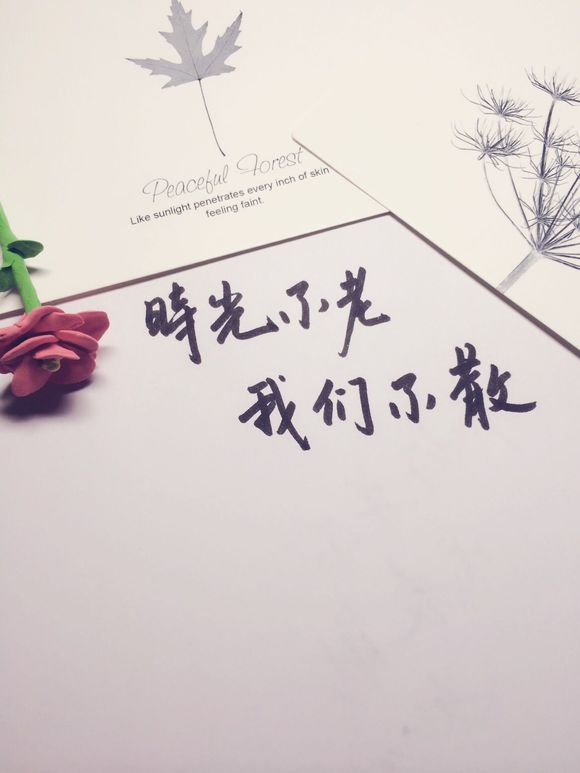 Peaceful Forest
Like sunlight penetrates every inch of skin
feeling faint.
時光不老
我们不散